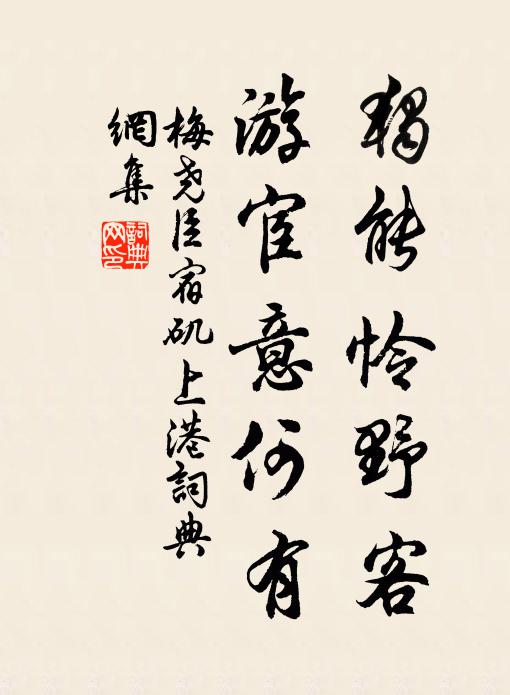 獨能怜野客
游宦意何有
梅尧臣宿矶上港詞典
網集
詞典网印